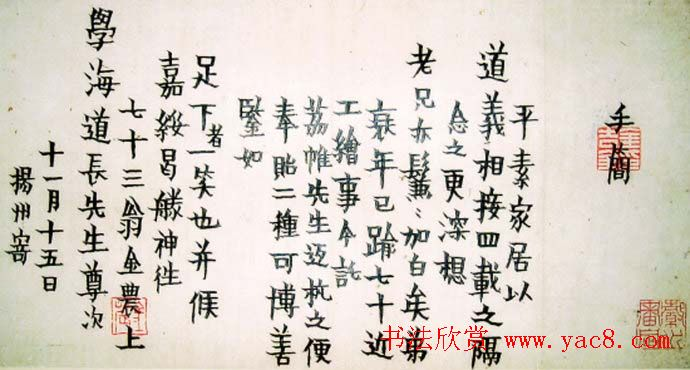 手簡
平素家居以
道義相接四載之隔
念之更深想
老兄亦鬢〻加白矣弟
衰年已踰七十近
工繪事今託
荔帷先生迈杭之便
奉貽二種可博善
鑒如
足下者一笑也并候
嘉綏曷勝神徃
七十三翁金農上
學海道長先生尊次
十一月十五日
揚州寄
书法欣赏 www.yac8.com